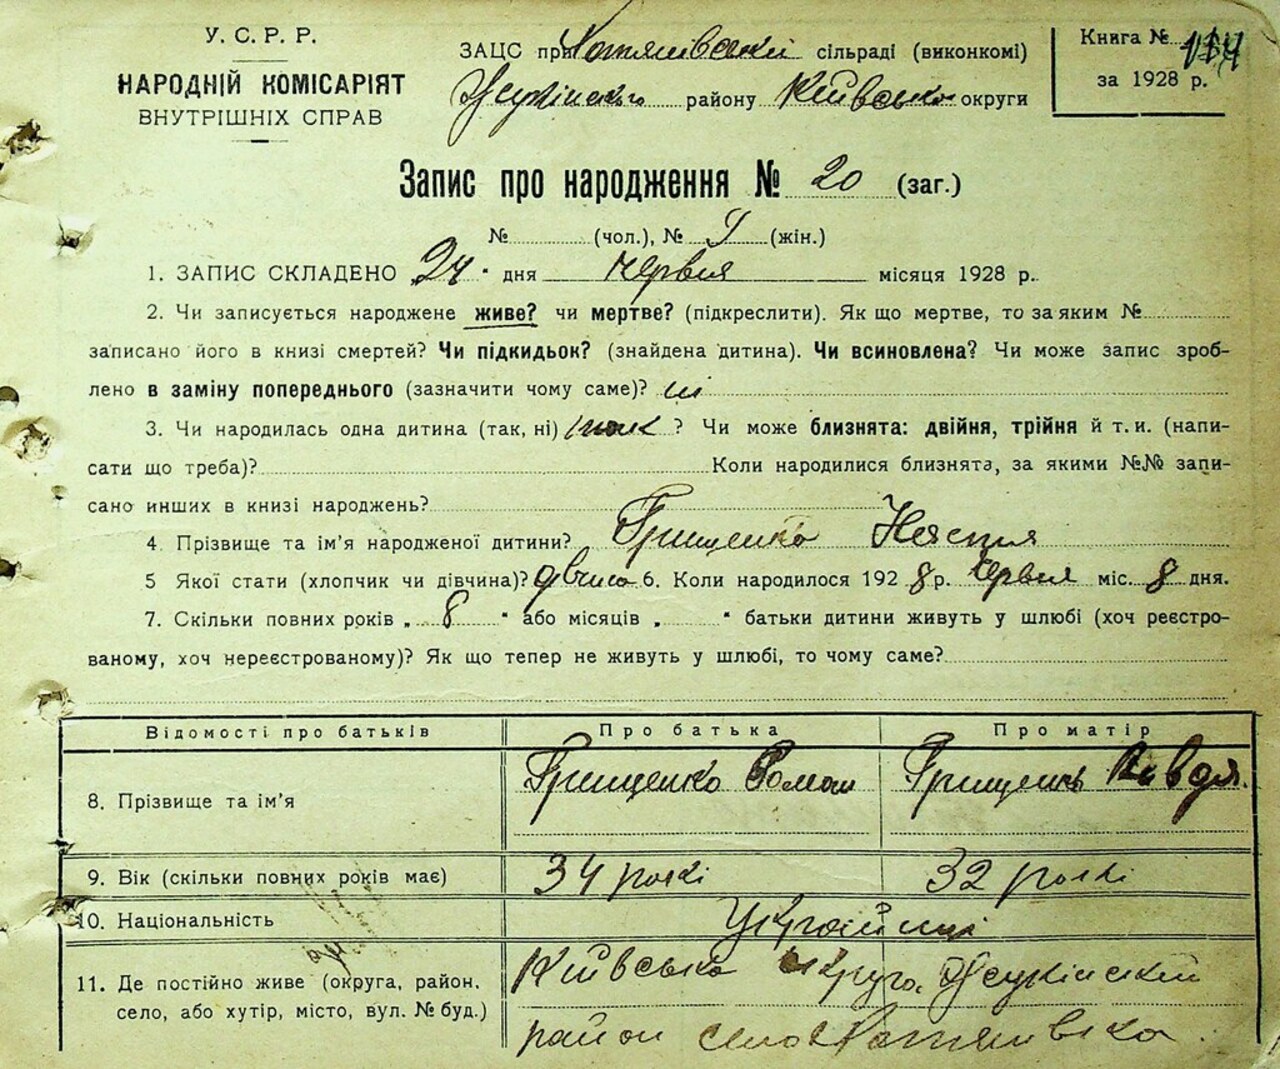 У. С. Р. Р.
НАРОДНІЙ КОМІСАРІЯТ
ВНУТРІШНІХ СПРАВ
ЗАЦС при Хотянівській сільраді (виконкомі)
Жукінського району Київсько округи
Книга № 114
за 1928 р.
Запис про народження № 20 (заг.)
№ (чол.), № (жін.)
1. ЗАПИС СКЛАДЕНО 24 " дня червня місяця 1928 р.
2. Чи записується народжене живе? чи мертве? (підкреслити). Як що мертве, то за яким №
записано його в книзі смертей? Чи підкидьок? (знайдена дитина). Чи всиновлена? Чи може запис зроб-
лено в заміну попереднього (зазначити чому саме)? ні
3. Чи народилась одна дитина (так, ні) так ? Чи може близнята: двійня, трійня й т. и. (напи-
сати що треба)? Коли народилися близнята, за якими №№ запи-
сано инших в книзі народжень?
4. Прізвище та ім'я народженої дитини? Грищенко Настя
5 Якої стати (хлопчик чи дівчина)? 6. Коли народилося 192 8 р. червня міс. 8 дня.
7. Скільки повних років „ 8 " або місяців „ " батьки дитини живуть у шлюбі (хоч реєстро-
ваному, хоч нереєстрованому)? Як що тепер не живуть у шлюбі, то чому саме?
Відомості про батьків Про батька Про матір
8. Прізвище та ім'я Грищенко Роман Грищенко Явдя.
9. Вік (скільки повних років має) 34 рокі 32 рокі
10. Національність Українці
11. Де постійно живе (округа, район, Київсько округа, Жукінський
село, або хутір, місто, вул. № буд.) район село Хотянівка.